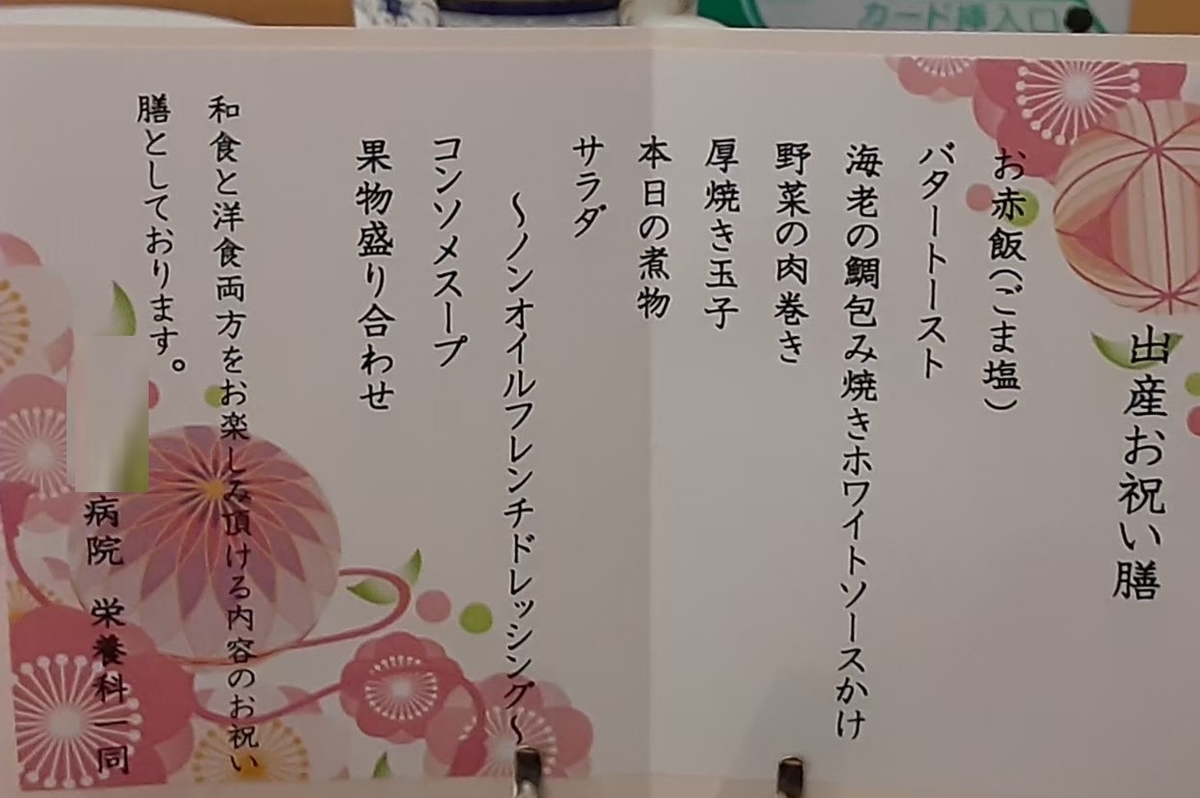 カード挿入口
出産お祝い膳
お赤飯(ごま塩)
バタートースト
海老の鯛包み焼きホワイトソースかけ
野菜の肉巻き
厚焼き玉子
本日の煮物
サラダ
～ノンオイルフレンチドレッシング～
コンソメスープ
果物盛り合わせ
和食と洋食両方をお楽しみ頂ける内容のお祝い
膳としております。
病院 栄養科一同